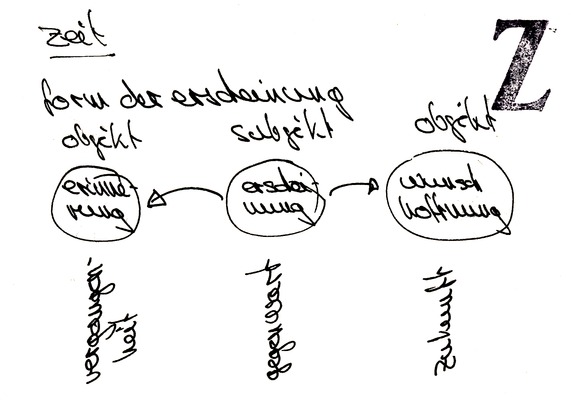 zeit
Z
form der erscheinung
objekt
subjekt
objekt
erinne-
rung
erschei-
nung
wunsch
hoffnung
vergangen-
heit
gegenwart
zukunft